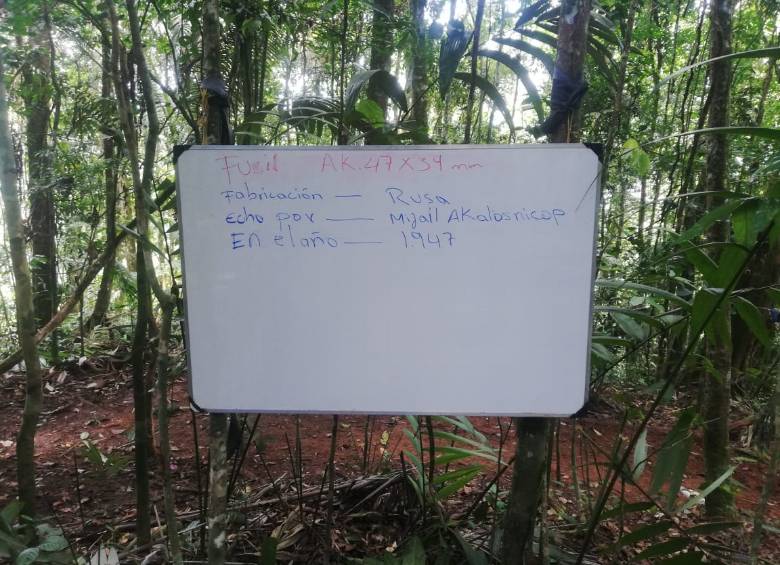 Fusil AK.47x39 mm
Fabricación — Rusa
Echo por — Mijail AKalosnicop
EN el año — 1.947